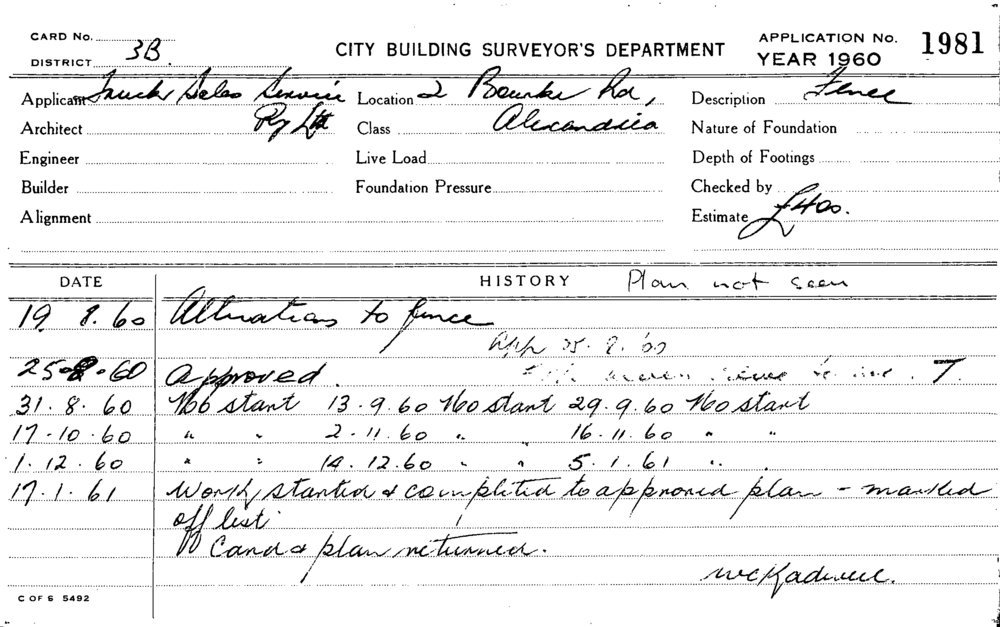 CARD No.
DISTRICT 3B.
CITY BUILDING SURVEYOR'S DEPARTMENT
APPLICATION No. 1981
YEAR 1960
Applicant Trucks Sales Service Location 2 Bourke Rd, Description Fence
Architect Pty Ltd Class Alexandria Nature of Foundation
Engineer Live Load Depth of Footings
Builder Foundation Pressure Checked by
Alignment Estimate £400.
DATE HISTORY Plan not seen
19. 8. 60 Alterations to fence
App 25. 8. 60
25-8-60 Approved. T.
31. 8. 60 No start 13-9.60 No start 29.9.60 No start
17-10.60 " " 2-11.60 " " 16.11.60 " "
1.12.60 " " 14.12.60 " " 5.1.61 " "
17.1.61 Work started & completed to approved plan - marked
off list
Card & plan returned.
C OF S 5492